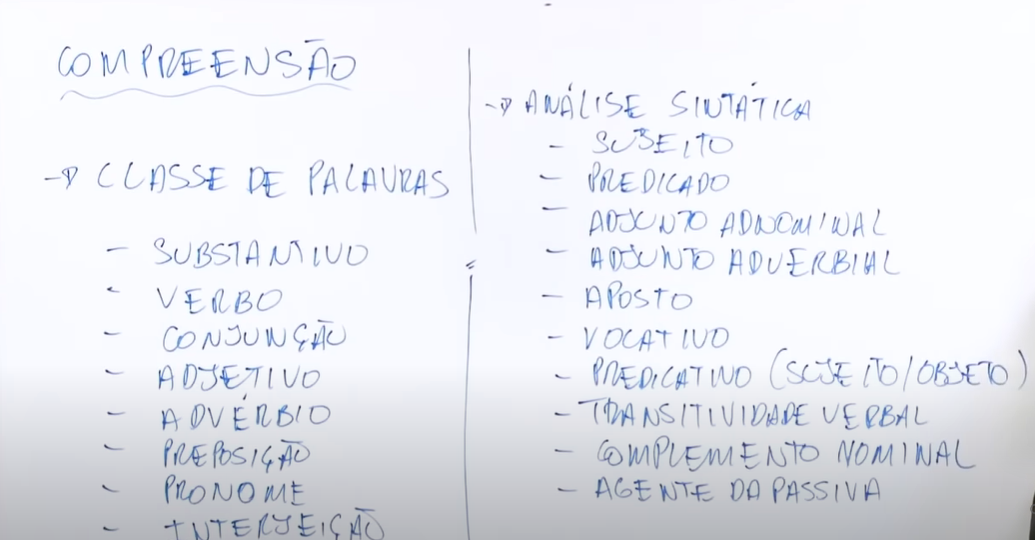 COMPREENSÃO
-> CLASSE DE PALAVRAS
- SUBSTANTIVO
- VERBO
- CONJUNÇÃO
- ADJETIVO
- ADVÉRBIO
- PREPOSIÇÃO
- PRONOME
- INTERJEIÇÃO
-> ANÁLISE SINTÁTICA
- SUJEITO
- PREDICADO
- ADJUNTO ADNOMINAL
- ADJUNTO ADVERBIAL
- APOSTO
- VOCATIVO
- PREDICATIVO (SUJEITO/OBJETO)
- TRANSITIVIDADE VERBAL
- COMPLEMENTO NOMINAL
- AGENTE DA PASSIVA